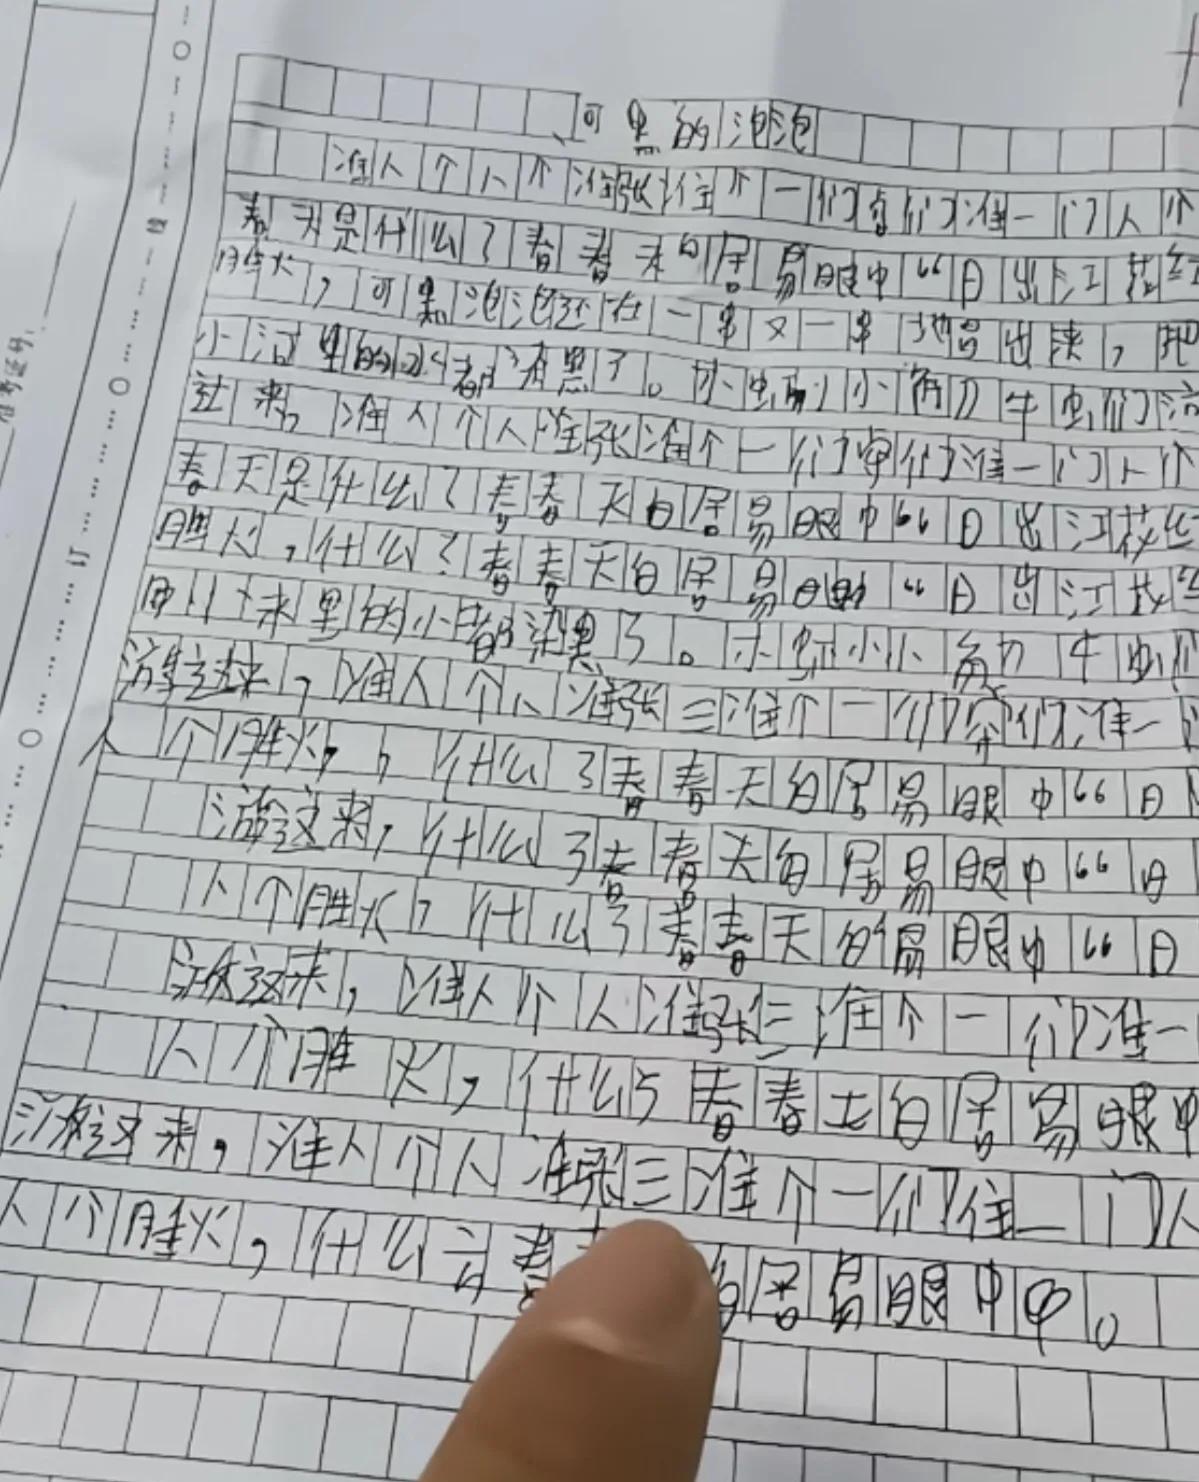 可黑的泡泡
准人个人个准张准个一们看们准一门人个
春天是什么了春春天白居易眼中“日出江花红
胜火，可黑泡泡还在一串又一串地冒出来，把
小河里的水都染黑了。小虫虾小角刀牛虫们游
过来，准人个人准张准个一们窜们准一门人个
春天是什么了春春天白居易眼中“日出江花红
胜火，什么了春春天白居易眼中“日出江花红
来里的小都染黑了。小虾小小角刀牛虫们
游过来，准人个人准张三准个一们穿们准一
人个胜火，，什么了春春天白居易眼中“日
游这来，什么了春春天白居易眼中“日
人个胜火，什么了春春天白居易眼中“日
游这来，准人个人准张三准个一们准一
人个胜火，什么了春春土白居易眼中
游这来，准人个人准张三准个一们住一门人
人个胜火，什么言春居易眼中中。
准考证号：
装
订